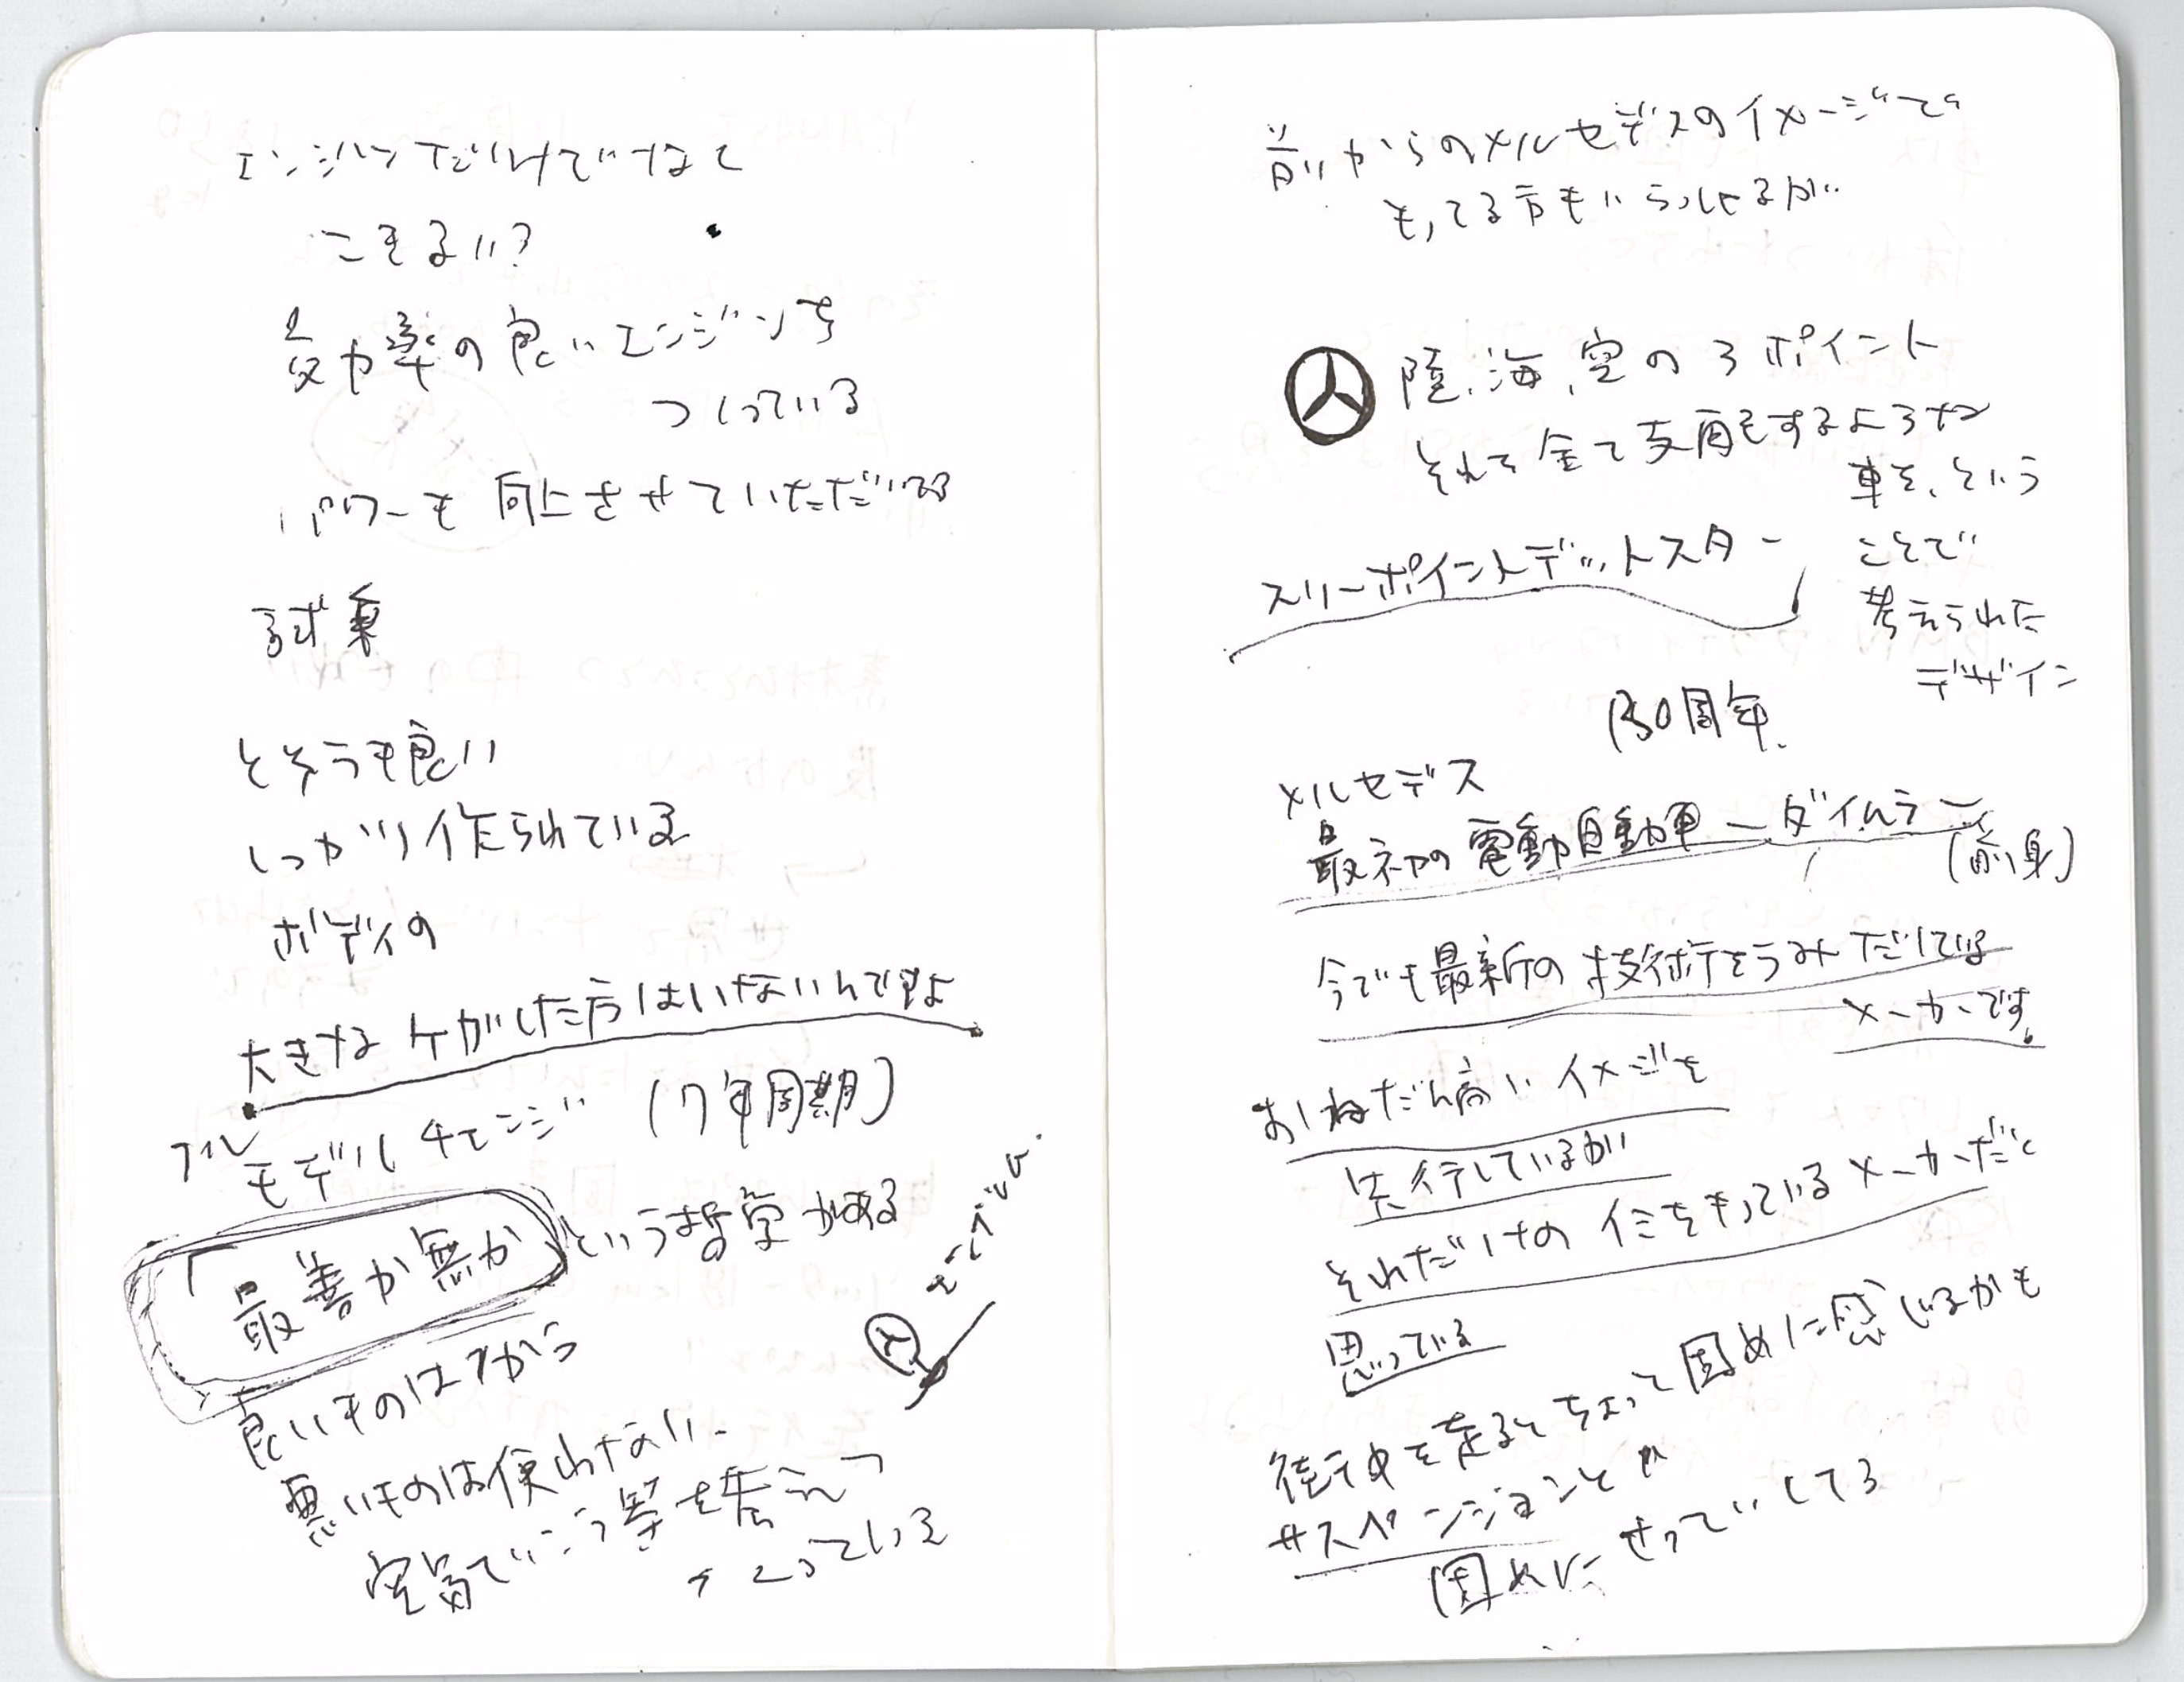 エンジンだけでなく
こきるい?
効率の良いエンジンを
つくっている
パワーも向上させていただいてる
試乗
とそうも良い
しっかり作られている
ボディの
大きなケガした方はいないんですよ
フル
モデルチェンジ (7年周期)
「最善か無か という哲学がある
良いものはつから
悪いものは使わない
という
っている
前からのメルセデスのイメージで
もってる方もいらっしゃるが
陸、海、空の3ポイント
それで全て支角をするような
車を、という
ことで
考えられた
デザイン
スリーポインテッドスター
130周年
メルセデス
最初の電動自動車 ー ダイムラー
(前身)
今でも最新の技術をうみだしている
メーカーです。
おねだん高いイメージを
先行しているが
それだけの をもっているメーカーだと
思っている
街中を走るとちょっと固めに感じるかも
サスペンションとか
固めにせっていしてる